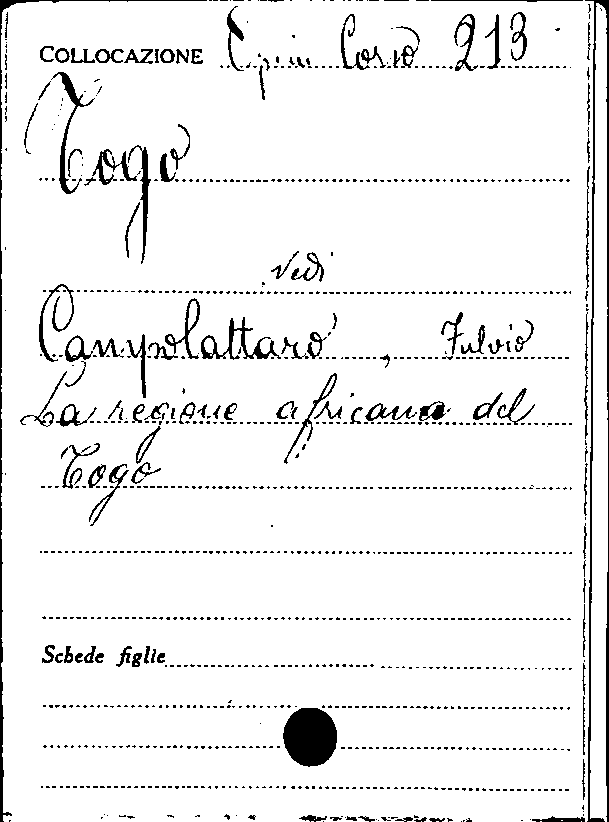 COLLOCAZIONE Opin Corso 213
Togo
vedi
Campolattaro, Fulvio
La regione africana del
Togo
Schede figlie